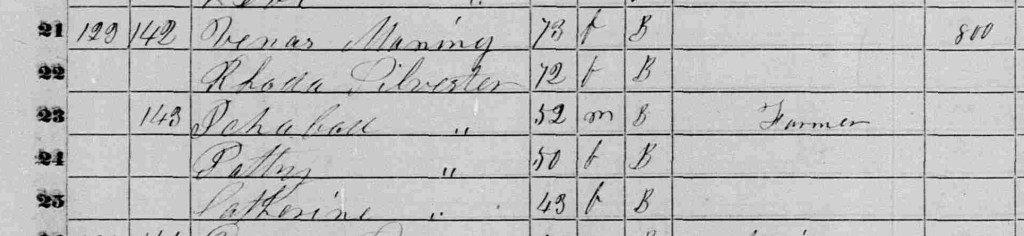 21 129 142 Venas Maning 73 f B 800
22 Rhoda Silvester 72 f B
23 143 Ichabad " 52 m B Farmer
24 Patty " 50 f B
25 Catherine " 43 f B